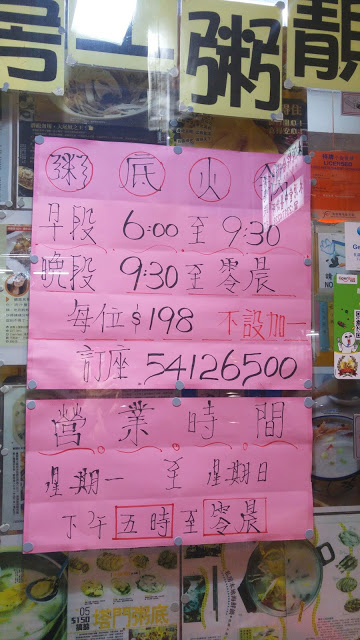 粥 靚
粥 底 火
早段 6:00 至 9:30
晚段 9:30 至 零晨
每位 $198 不設加一
訂座 54126500
營 業 時 間
星期一 至 星期日
下午 五時 至 零晨
LICENSED
$150
塔門粥底